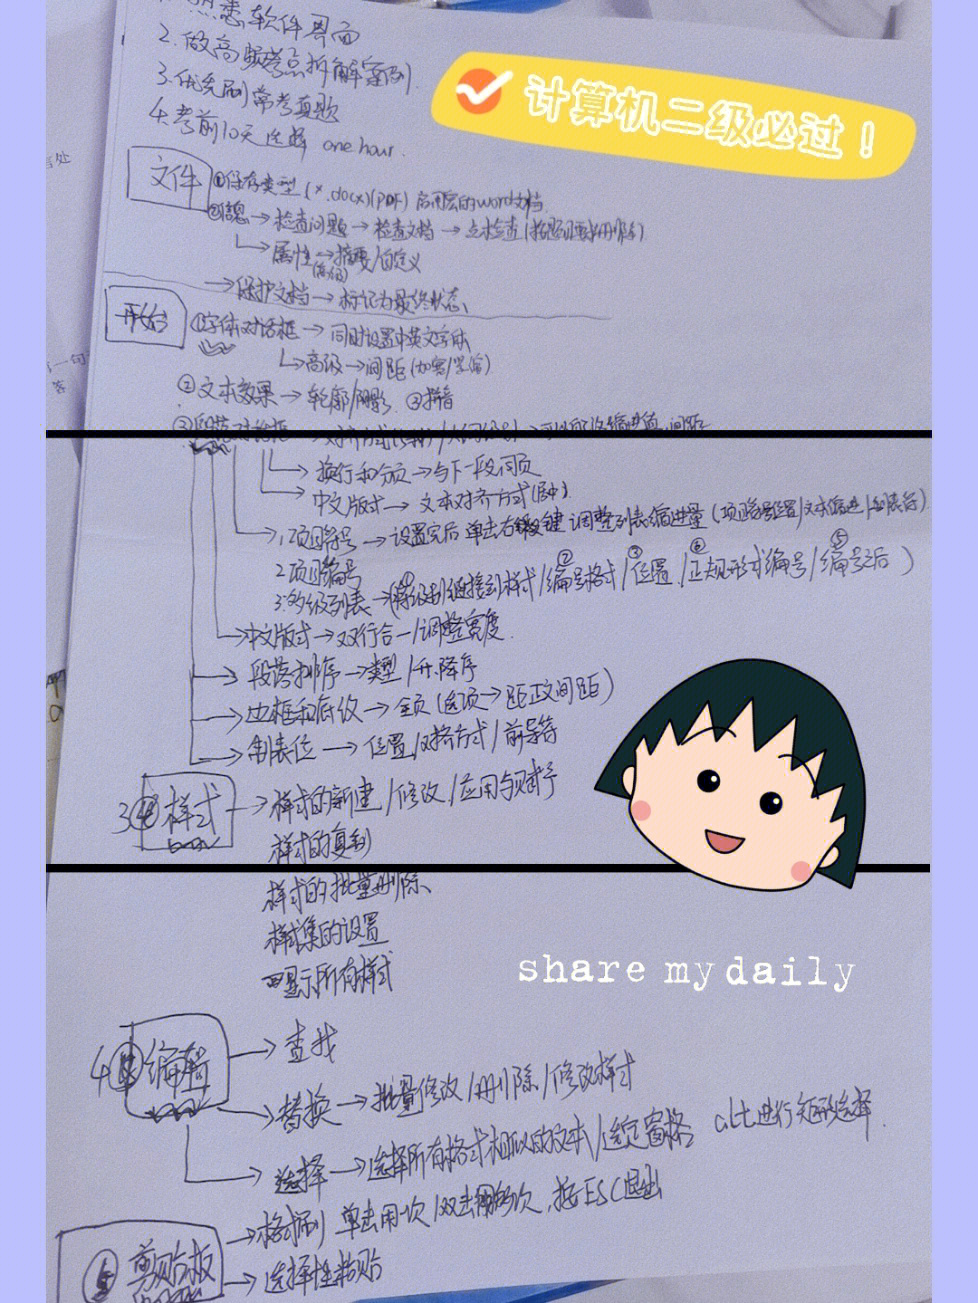 熟悉软件界面
2.做高频考点拆解案例.
3.优先刷常考真题
4.考前10天选择 one hour.
计算机二级必过！
文件
①保存类型(*.docx)(PDF) 启用宏的word文档
②信息→检查问题→检查文档→点检查(按题目要求删除)
→属性→摘要/自定义
(高级)
→保护文档→标记为最终状态
开始
①字体对话框→同时设置中英文字体
→高级→间距(加宽/紧缩)
②文本效果→轮廓/阴影 ③拼音
③段落对话框
→换行和分页→与下一段同页
→中文版式→文本对齐方式(居中)
→1.项目符号→设置完后单击右键调整列表缩进量(项目符号位置/文本缩进/制表符)
2.项目编号
3.多级列表→(①将级别链接到样式/②编号格式/③位置/④正规形式编号/⑤编号之后)
→中文版式→双行合一/调整宽度
→段落排序→类型/升.降序
→边框和底纹→(选项→距正文间距)
→制表位→位置/对齐方式/前导符
3④样式→样式的新建/修改/应用与赋予
样式的复制
样式的批量删除
样式集的设置
显示所有样式
share my daily
4 编辑→查找
→替换→批量修改/删除/修改样式
→选择→选择所有格式相似的文本/选定窗格 alt进行矩形选择
⑤剪贴板→格式刷 单击用一次/双击用多次,按ESC退出
→选择性粘贴